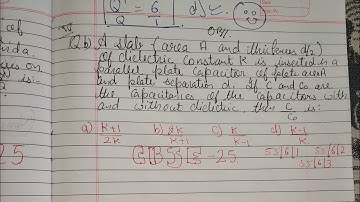 of
nda.
es on
is:-
25
Q' = 6
Q 1
d) ✓.
Q6) A slab (area A and thickness d/2)
Of dielectric constant K is inserted in a
parallel plate Capacitor of plate area A
and plate separation d. If C and Co are
the Capacitances of the Capacitors with
and without dielectric, then C is:
Co
a) K+1
2K
b) 2K
K+1
c) K
K-1
d) K-1
K
CBSE-25
55/6/1 55/6/2
55/6/3